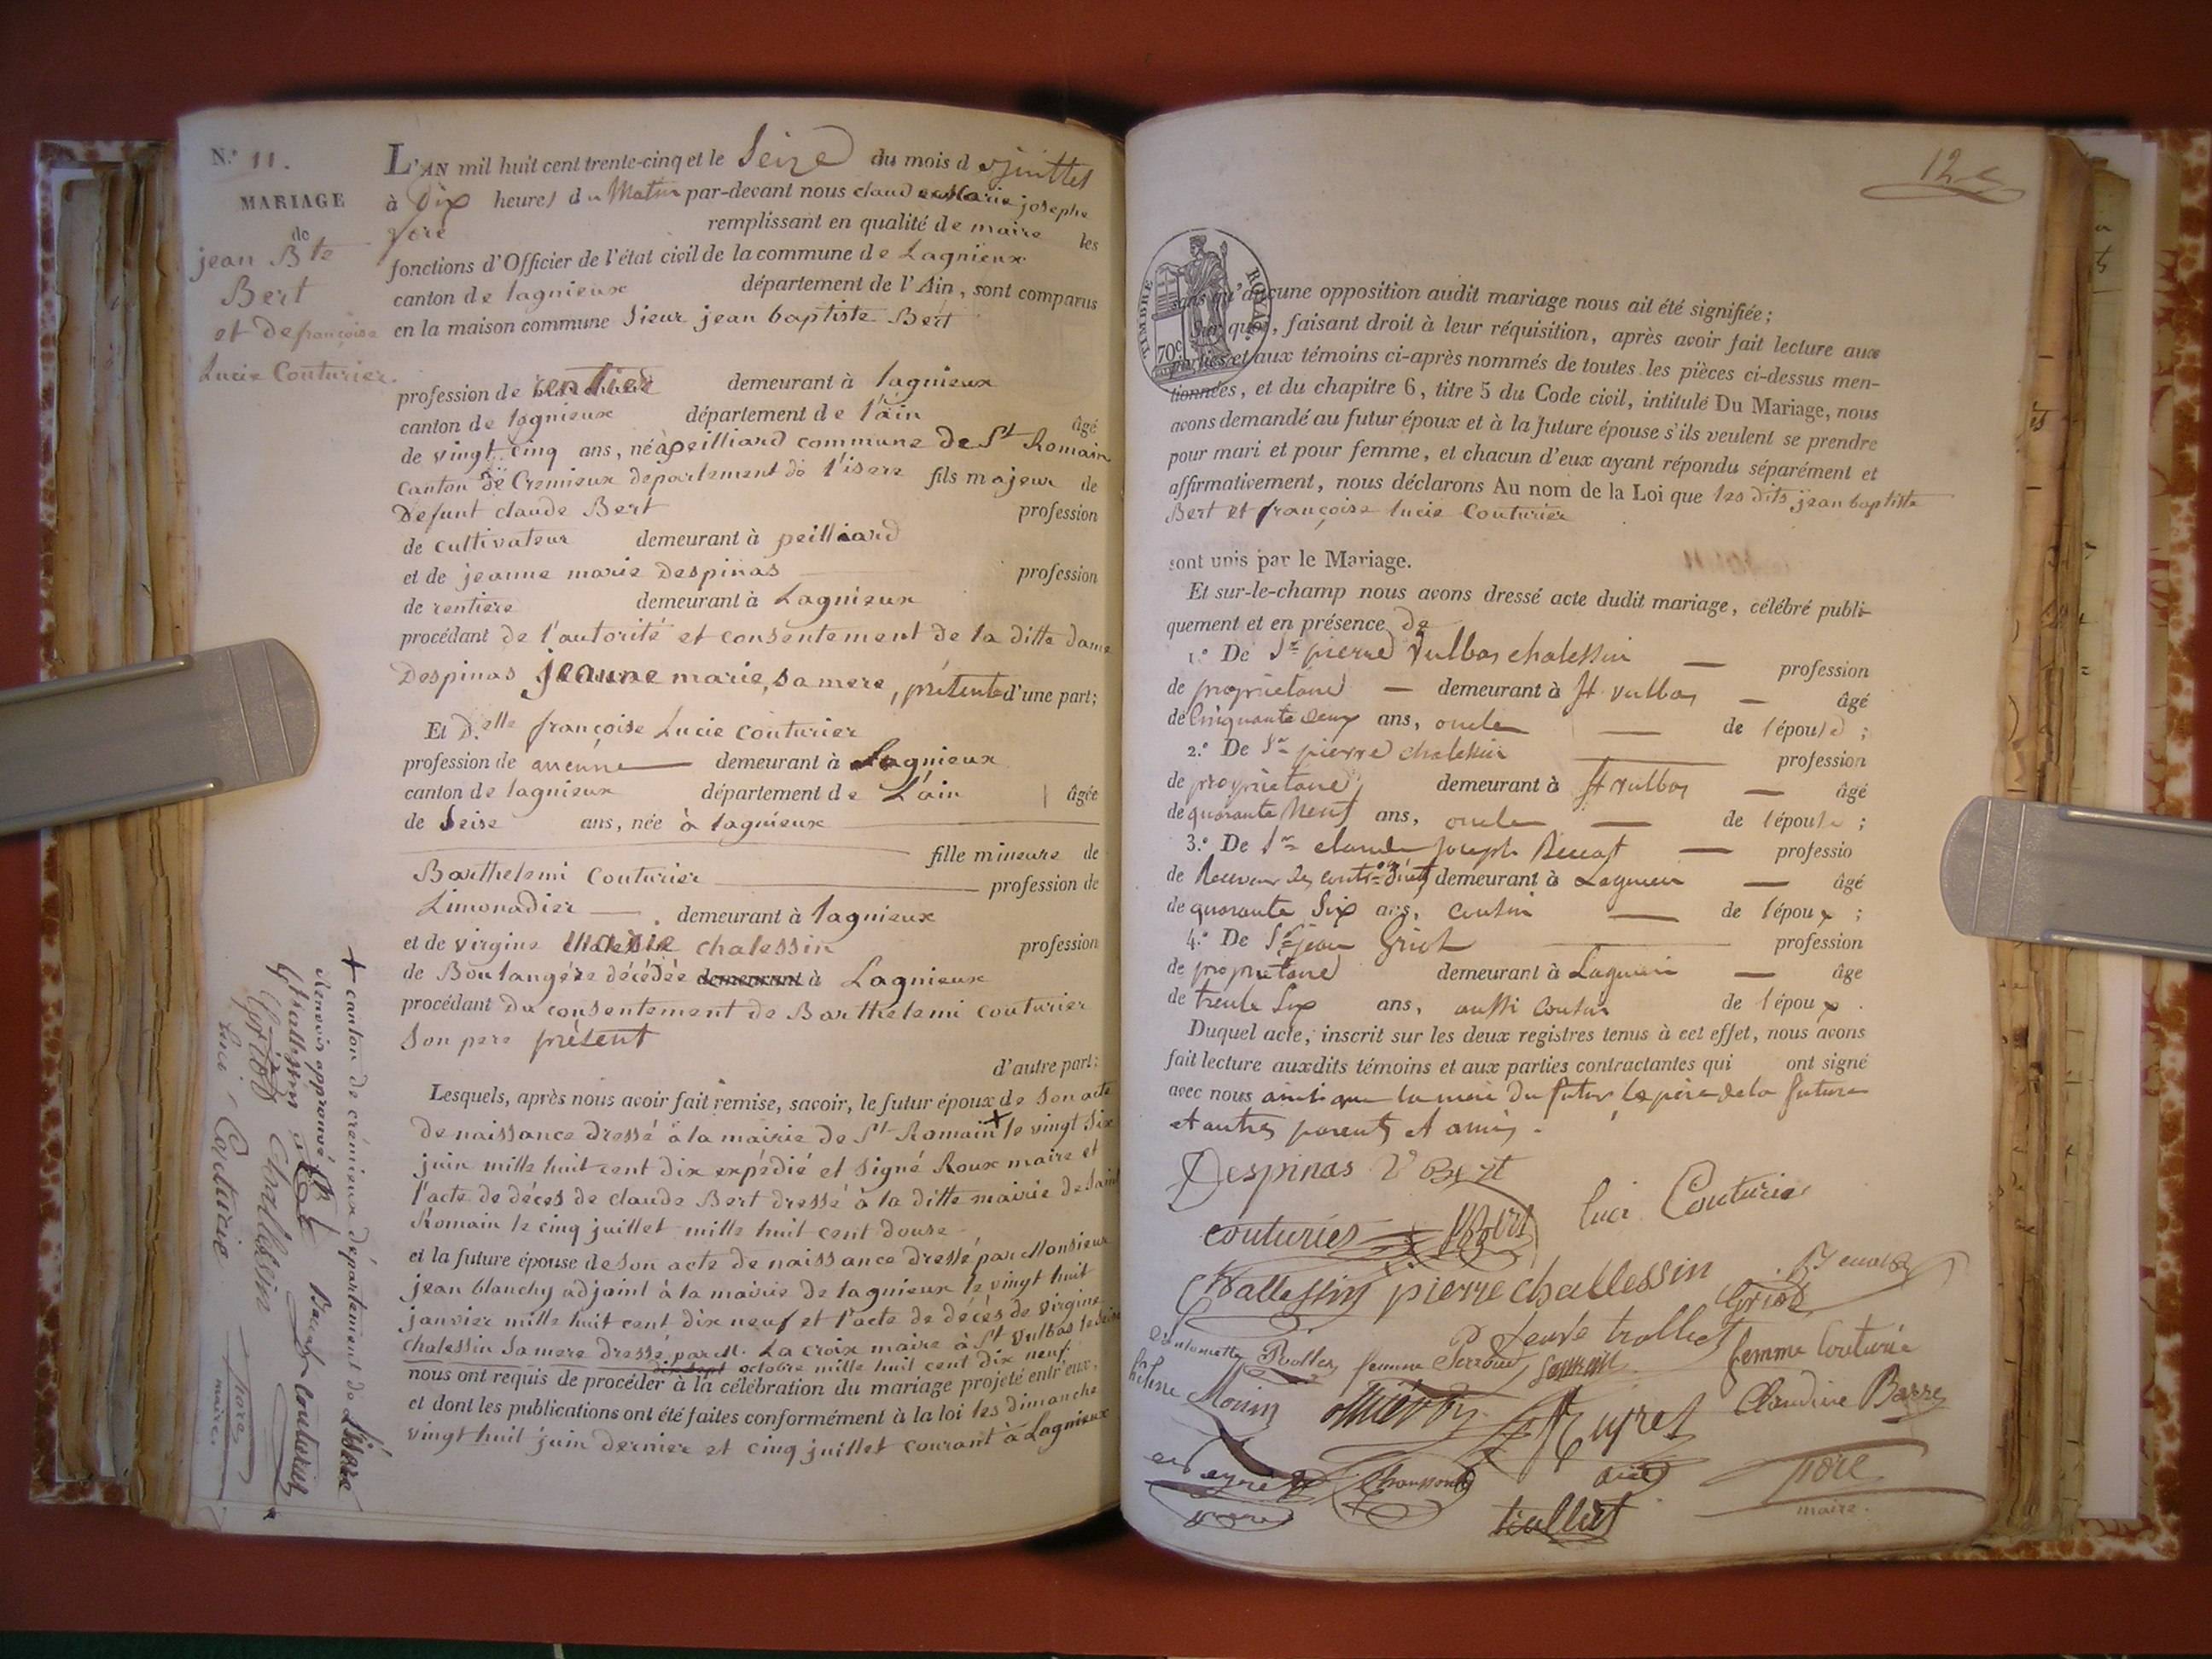 N.o 11.
MARIAGE
de
jean Bte
Bert
et de françoise
Lucie Couturier.
L'AN mil huit cent trente-cinq et le Seize du mois de juillet
à Dix heures du Matin par-devant nous claude Marie josephe
remplissant en qualité de maire les
fonctions d'Officier de l'état civil de la commune de Lagnieux
canton de lagnieux département de l'Ain, sont comparus
en la maison commune Sieur jean baptiste Bert
profession de rentier demeurant à lagnieux
canton de lagnieux département de l'ain âgé
de vingt cinq ans, né à peilliard commune de St Romain
canton de Cremieux departement de l'isere fils majeur de
Defunt claude Bert profession
de cultivateur demeurant à peilliard
et de jeanne marie Despinas profession
de rentiere demeurant à Lagnieux
procédant de l'autorité et consentement de la ditte dame
Despinas jeanne marie, sa mere, présente d'une part;
Et D.elle françoise Lucie Couturier
profession de aucune demeurant à Lagnieux
canton de lagnieux département de L'ain âgée
de Seise ans, née à lagnieux
fille mineure de
Barthelemi Couturier profession de
Limonadier demeurant à lagnieux
et de virgine chalessin profession
de Boulangère décédée demeurant à Lagnieux
procédant du consentement de Barthelemi Couturier
Son pere présent
d'autre part:
Lesquels, après nous avoir fait remise, savoir, le futur époux de son acte
de naissance dressé à la mairie de St Romain + le vingt Six
juin mille huit cent dix expédié et signé Roux maire et
l'acte de déces de claude Bert dressé à la ditte mairie de Saint
Romain le cinq juillet mille huit cent douse
et la future épouse de son acte de naissance dressé par Monsieur
jean blanchy adjoint à la mairie de lagnieux le vingt huit
janvier mille huit cent dix neuf et l'acte de décès de virgine
chalessin sa mere dressé par M. La croix maire à St Vulbas le seise
dix sept octobre mille huit cent dix neuf.
nous ont requis de procéder à la célébration du mariage projeté entr'eux,
et dont les publications ont été faites conformément à la loi les dimanche
vingt huit juin dernier et cinq juillet courant à Lagnieux
+ canton de crémieux département de L'isere
Renvoi approuvé
Challessin
Chalessin
Couturier
Griot
Luci Couturie
maire.
12
TIMBRE ROYAL
70c
sans qu'aucune opposition audit mariage nous ait été signifiée;
Sur quoi, faisant droit à leur réquisition, après avoir fait lecture aux
parties et aux témoins ci-après nommés de toutes les pièces ci-dessus men-
tionnées, et du chapitre 6, titre 5 du Code civil, intitulé Du Mariage, nous
avons demandé au futur époux et à la future épouse s'ils veulent se prendre
pour mari et pour femme, et chacun d'eux ayant répondu séparément et
affirmativement, nous déclarons Au nom de la Loi que les dits jean baptiste
Bert et françoise lucie Couturier
sont unis par le Mariage.
Et sur-le-champ nous avons dressé acte dudit mariage, célébré publi-
quement et en présence de
1.o De Sr pierre Vulbas chalessin profession
de proprietaire demeurant à St vulbas âgé
de Cinquante deux ans, oncle de l'épouse;
2.o De Sr pierre chalessin profession
de proprietaire demeurant à St vulbas âgé
de quarante Neuf ans, oncle de l'épouse;
3.o De Sr claude Joseph profession
de Receveur des demeurant à Lagnieu âgé
de quarante Six ans, cousin de l'époux;
4.o De Sr jean Griot profession
de proprietaire demeurant à Lagnieu âgé
de trente Six ans, aussi cousin de l'époux.
Duquel acte, inscrit sur les deux registres tenus à cet effet, nous avons
fait lecture auxdits témoins et aux parties contractantes qui ont signé
avec nous ainsi que la mere du futur le père de la future
et autres parents et amis.
Despinas Ve Bert
couturier Bert luci Couturier
Challessin pierre challessin
Griot
femme veuve trolliet femme Couturié
Claudine Barre
trolliet
maire.